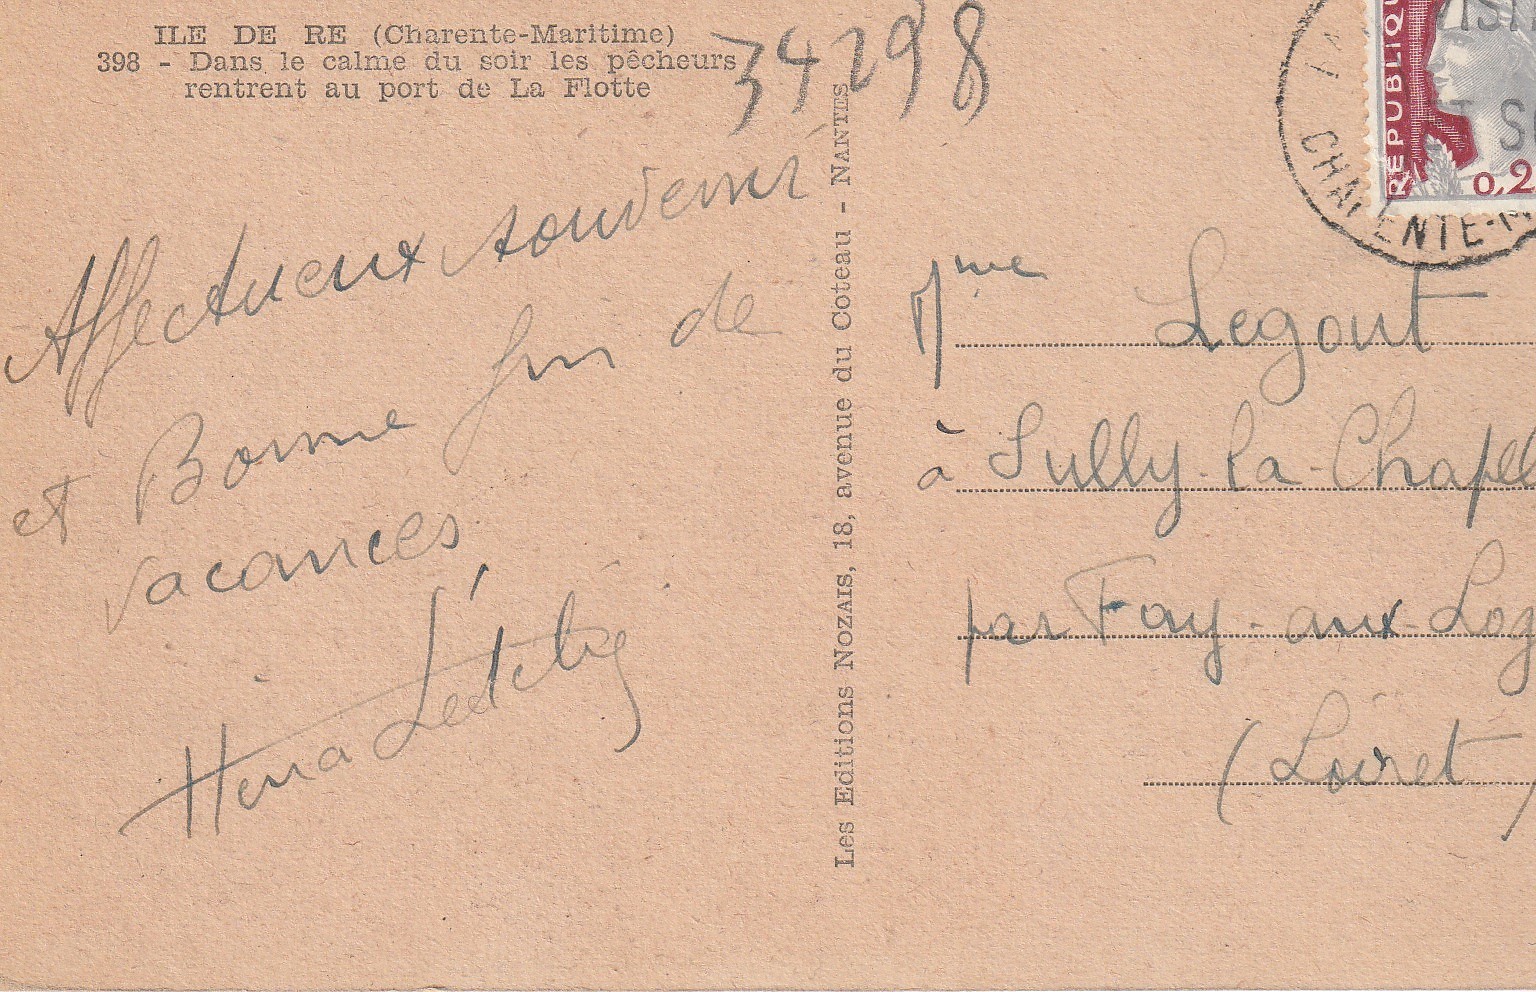 ILE DE RE (Charente-Maritime)
398 - Dans le calme du soir les pêcheurs
rentrent au port de La Flotte
34298
Affectueux souvenir
et Bonne fin de
vacances
Les Editions NOZAIS, 18, avenue du Coteau - NANTES
REPUBLIQU
0,2
CHARENTE-M
Mme Legout
à Sully-la-Chapell
par Fay-aux-Log
(Loiret)